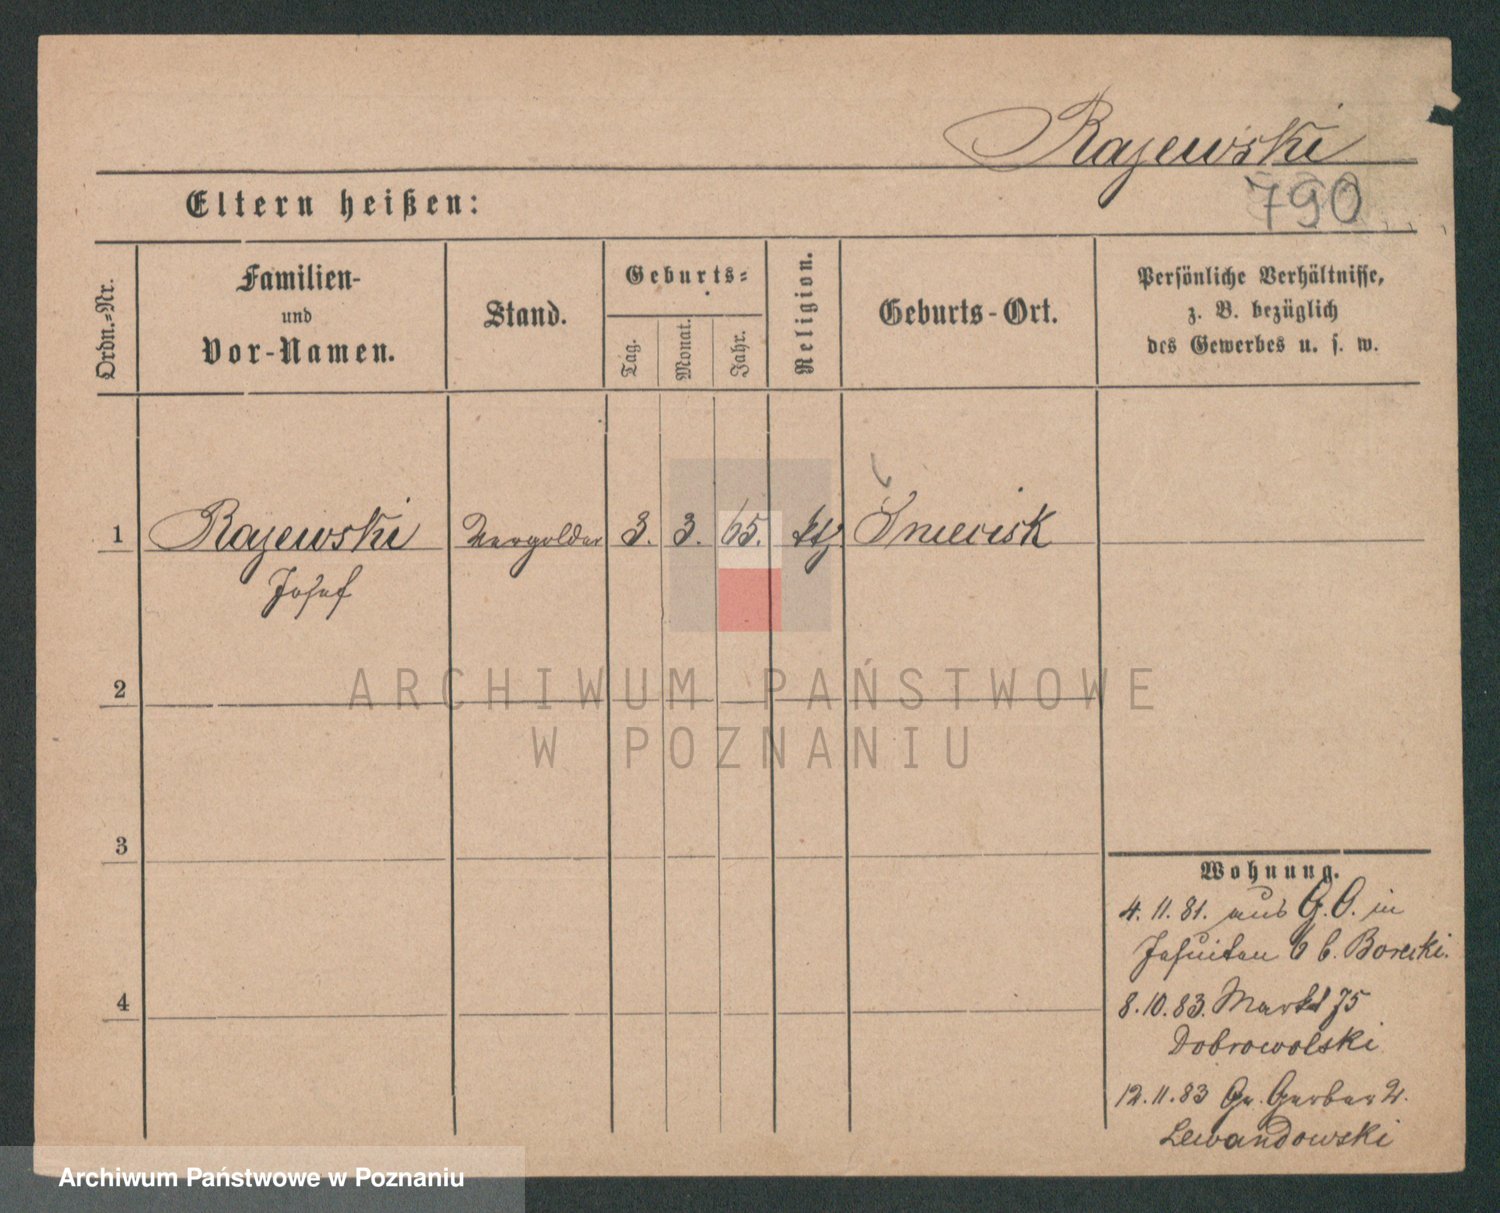 Rajewski
790
Eltern heißen:
Ordn.=Nr.
Familien-
und
Vor-Namen.
Stand.
Geburts=
Tag.
Monat.
Jahr.
Religion.
Geburts-Ort.
Persönliche Verhältnisse,
z. B. bezüglich
des Gewerbes u. s. w.
1 Rajewski Vergolder 3. 3. 65. kth
Josef
ARCHIWUM PAŃSTWOWE
W POZNANIU
2
3
4
Wohnung.
4. 11. 81. aus G. O. in
Jesuiten 6 b. Borecki.
8. 10. 83. Markt 75
Dobrowolski
12. 11. 83 Gr. Gerber
Lewandowski
Archiwum Państwowe w Poznaniu